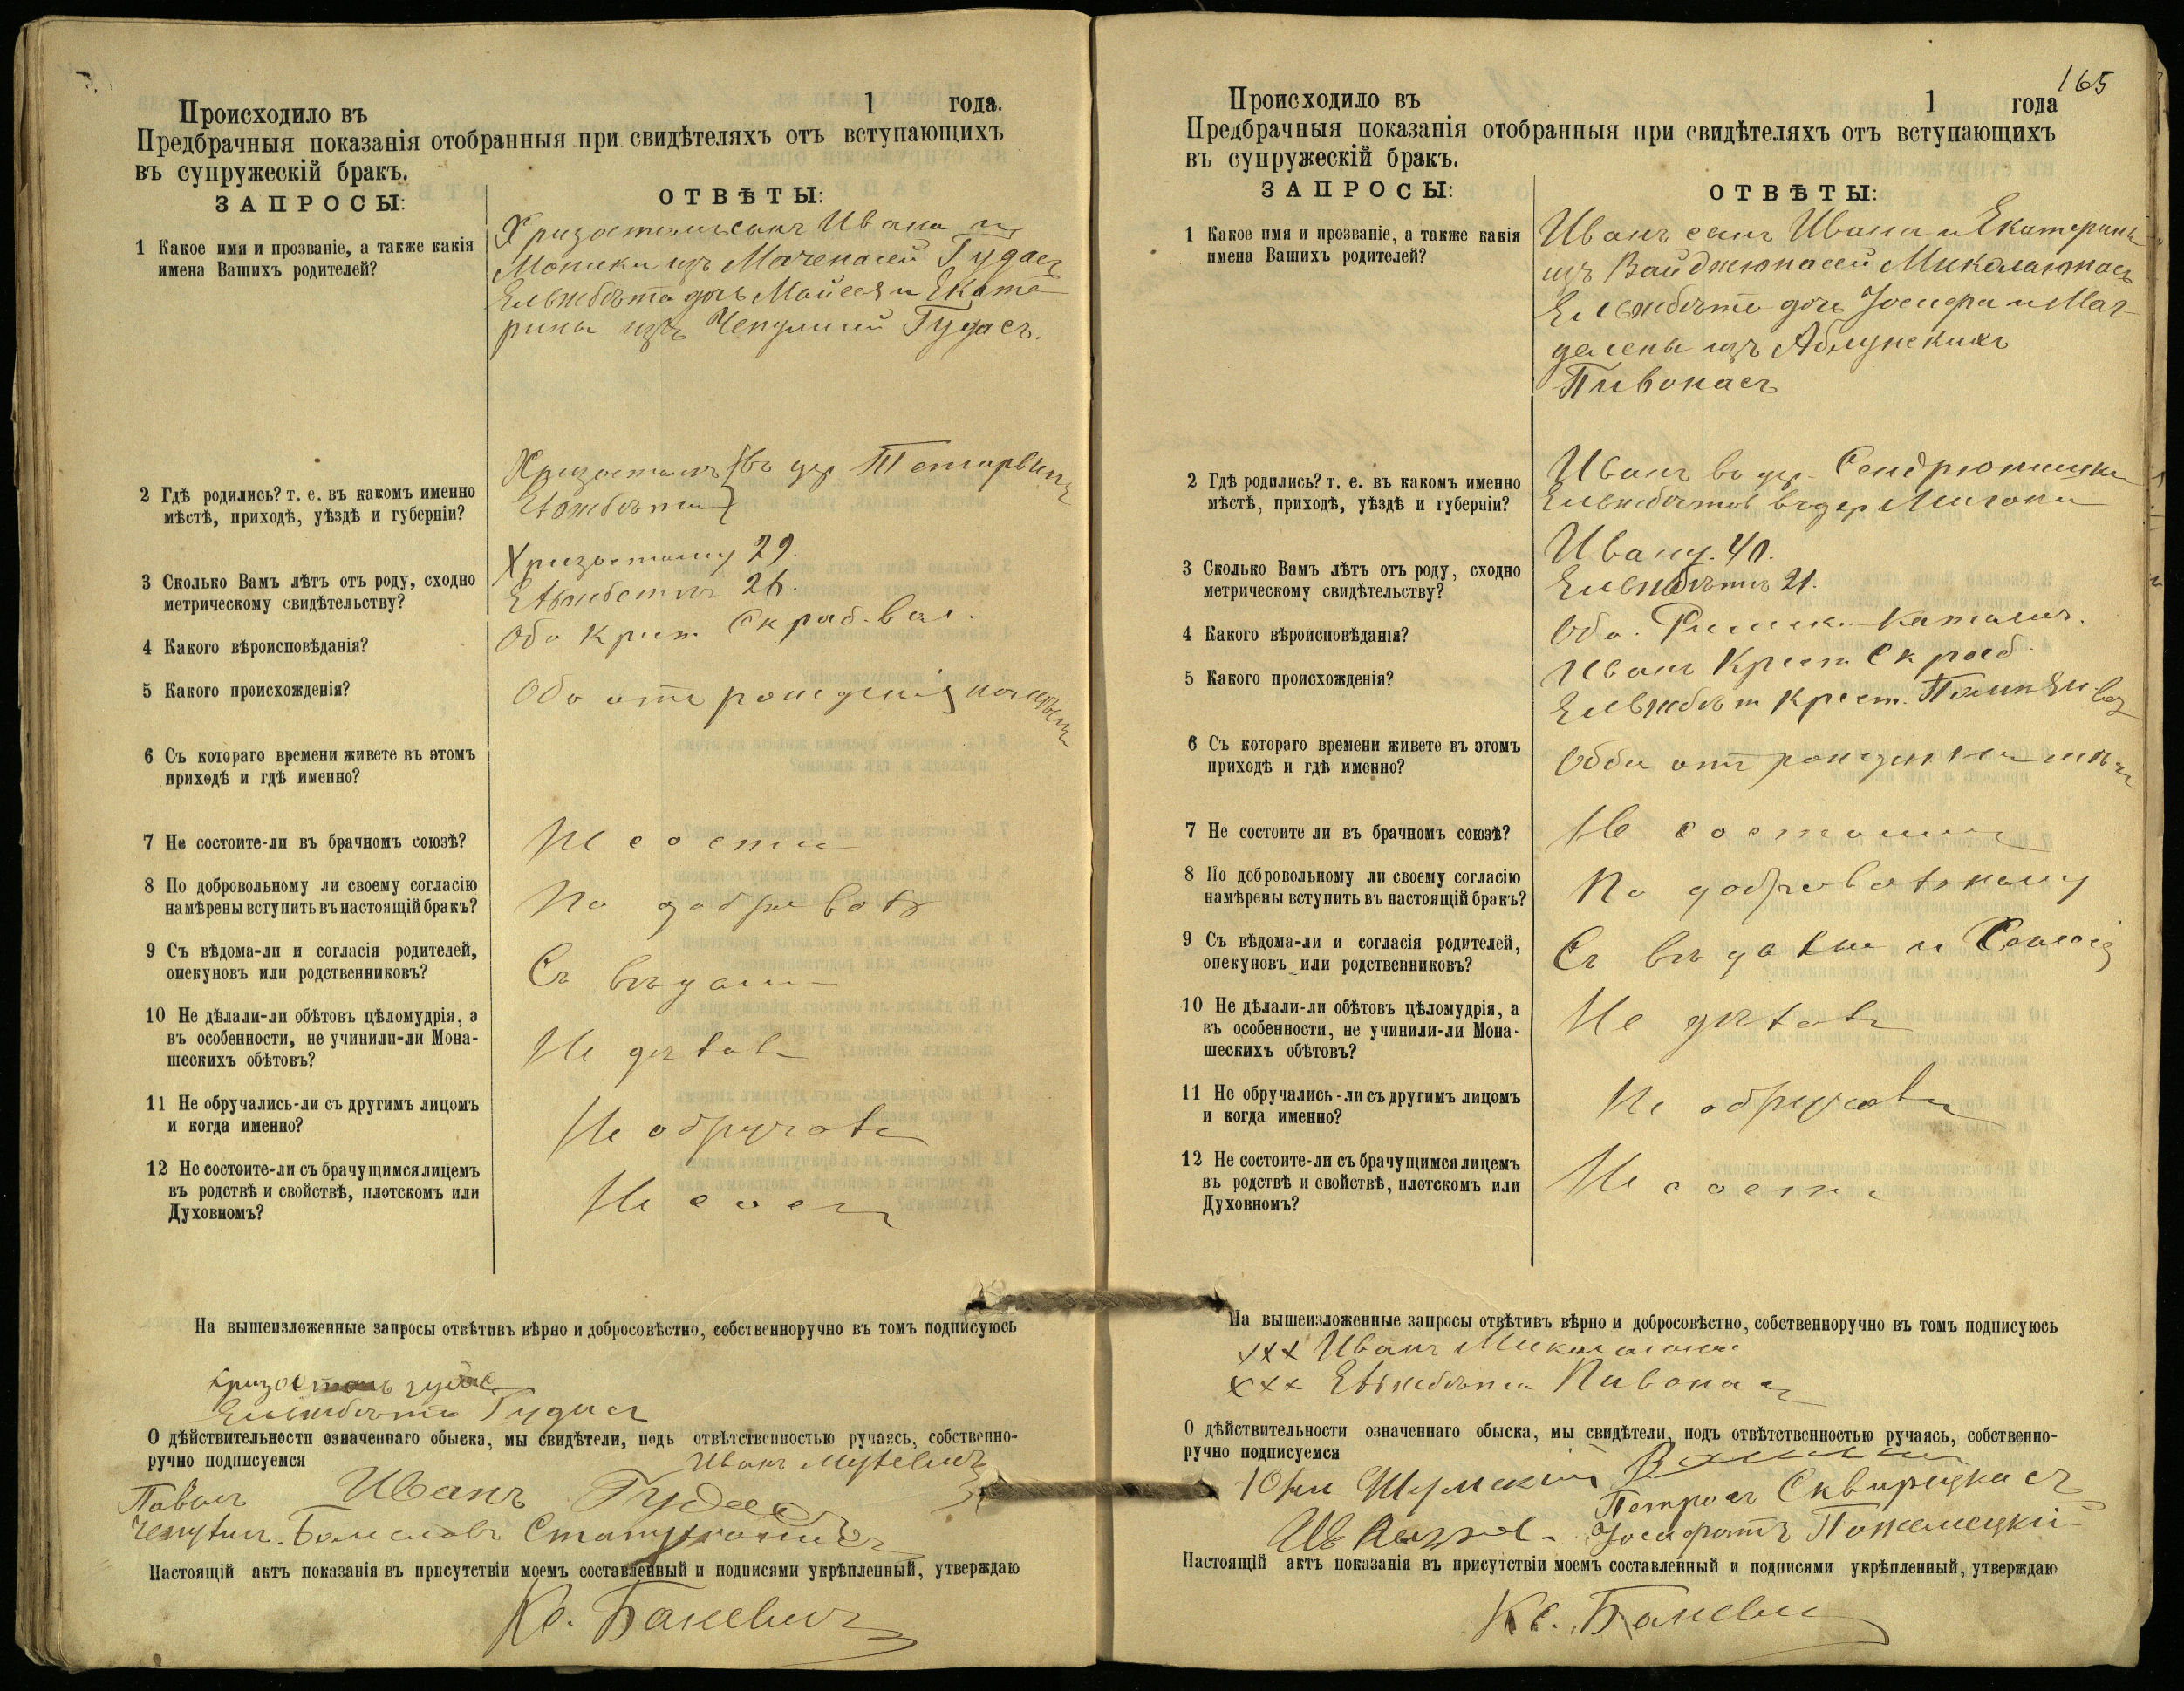 Происходило въ 1 года.
Предбрачныя показанія отобранныя при свидѣтеляхъ отъ вступающихъ
въ супружескій бракъ.
ЗАПРОСЫ: ОТВѢТЫ:
1 Какое имя и прозваніе, а также какія
имена Вашихъ родителей?
Ивана и
Моники изъ Гудасъ
Ельжбѣта дочь Мойсея и Екате-
рины изъ Гудасъ.
2 Гдѣ родились? т. е. въ какомъ именно
мѣстѣ, приходѣ, уѣздѣ и губерніи?
Хризостомъ въ дер
Ельжбѣта
3 Сколько Вамъ лѣтъ отъ роду, сходно
метрическому свидѣтельству?
Хризостому 29.
Ельжбетѣ 26.
4 Какого вѣроисповѣданія?
Оба Крест. Скраб. вол.
5 Какого происхожденія?
Оба отъ рожденія
6 Съ котораго времени живете въ этомъ
приходѣ и гдѣ именно?
7 Не состоите-ли въ брачномъ союзѣ?
Не сости
8 По добровольному ли своему согласію
намѣрены вступить въ настоящій бракъ?
По доброволь
9 Съ вѣдома-ли и согласія родителей,
опекуновъ или родственниковъ?
Съ вѣдома
10 Не дѣлали-ли обѣтовъ цѣломудрія, а
въ особенности, не учинили-ли Мона-
шескихъ обѣтовъ?
Не дѣлали
11 Не обручались-ли съ другимъ лицомъ
и когда именно?
Не обручали
12 Не состоите-ли съ брачущимся лицемъ
въ родствѣ и свойствѣ, плотскомъ или
Духовномъ?
Не сост
На вышеизложенные запросы отвѣтивъ вѣрно и добросовѣстно, собственноручно въ томъ подписуюсь
Ельжбѣта Гудасъ
О дѣйствительности означеннаго обыска, мы свидѣтели, подъ отвѣтственностью ручаясь, собственно-
ручно подписуемся
Иванъ
Павелъ Иванъ Гудас
Настоящій актъ показанія въ присутствіи моемъ составленный и подписями укрѣпленный, утверждаю
Кс. Баневичъ
165
Происходило въ 1 года
Предбрачныя показанія отобранныя при свидѣтеляхъ отъ вступающихъ
въ супружескій бракъ.
ЗАПРОСЫ: ОТВѢТЫ:
1 Какое имя и прозваніе, а также какія
имена Вашихъ родителей?
Иванъ сынъ Ивана и Екатерины
изъ
Ельжбѣта дочь Іосифа и Маг-
далены изъ Аблунскихъ
Пивонасъ
2 Гдѣ родились? т. е. въ какомъ именно
мѣстѣ, приходѣ, уѣздѣ и губерніи?
Иванъ въ дер.
Ельжбѣта въ дер
3 Сколько Вамъ лѣтъ отъ роду, сходно
метрическому свидѣтельству?
Ивану.
Ельжбѣтѣ 21.
4 Какого вѣроисповѣданія?
Оба. Римск. Католич.
5 Какого происхожденія?
Иванъ Крест. Скраб
Ельжбѣт Крест.
6 Съ котораго времени живете въ этомъ
приходѣ и гдѣ именно?
отъ рожден
7 Не состоите ли въ брачномъ союзѣ?
Не состоим
8 По добровольному ли своему согласію
намѣрены вступить въ настоящій бракъ?
По добровольному
9 Съ вѣдома-ли и согласія родителей,
опекуновъ или родственниковъ?
Съ вѣдома и
10 Не дѣлали-ли обѣтовъ цѣломудрія, а
въ особенности, не учинили-ли Мона-
шескихъ обѣтовъ?
Не дѣлали
11 Не обручались-ли съ другимъ лицомъ
и когда именно?
Не обручали
12 Не состоите-ли съ брачущимся лицемъ
въ родствѣ и свойствѣ, плотскомъ или
Духовномъ?
Не сост
На вышеизложенные запросы отвѣтивъ вѣрно и добросовѣстно, собственноручно въ томъ подписуюсь
ххх Иванъ
ххх Ельжбѣта Пивонас
О дѣйствительности означеннаго обыска, мы свидѣтели, подъ отвѣтственностью ручаясь, собственно-
ручно подписуемся
Петросъ Сквирецкасъ
Настоящій актъ показанія въ присутствіи моемъ составленный и подписями укрѣпленный, утверждаю
Кс. Баневи